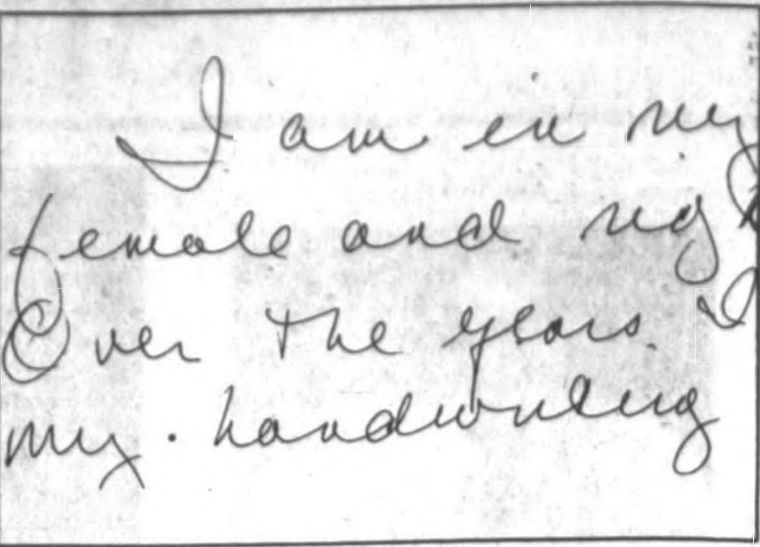 I am in my
female and righ
Over the years I
my. handwriting